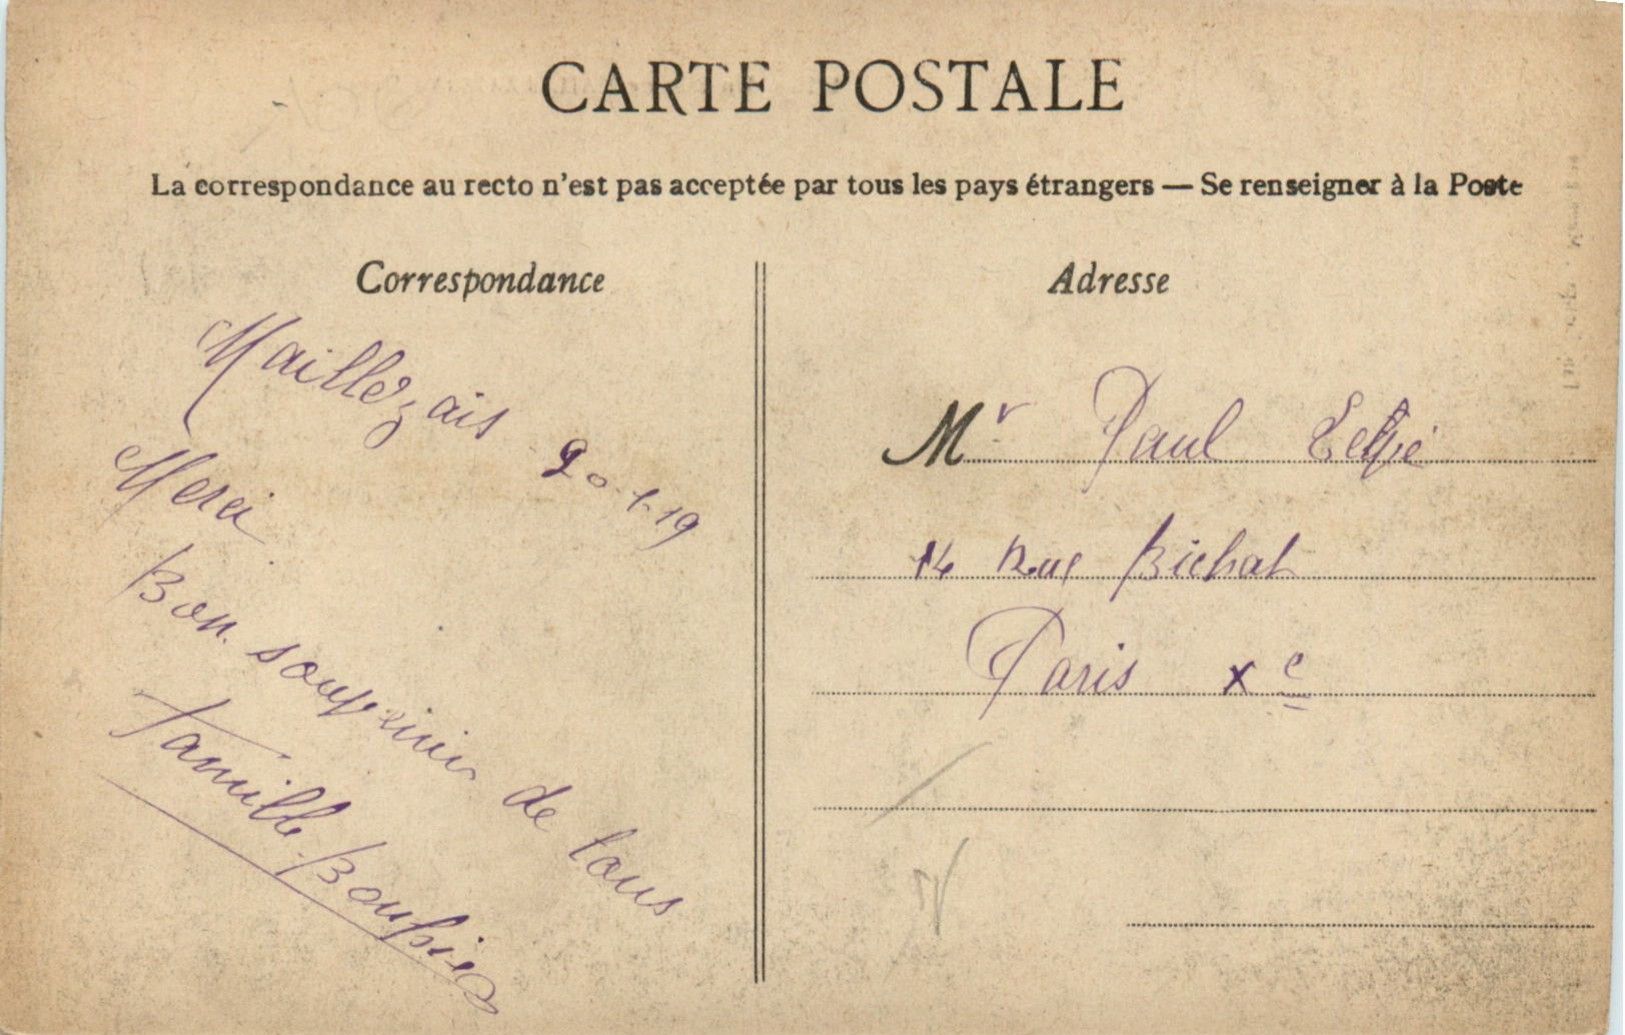 CARTE POSTALE
La correspondance au recto n'est pas acceptée par tous les pays étrangers — Se renseigner à la Poste
Correspondance
Maillezais 20-1-19
Merci
Bon souvenir de tous
Famille
Adresse
Mr Paul
14 Rue Bichat
Paris Xe